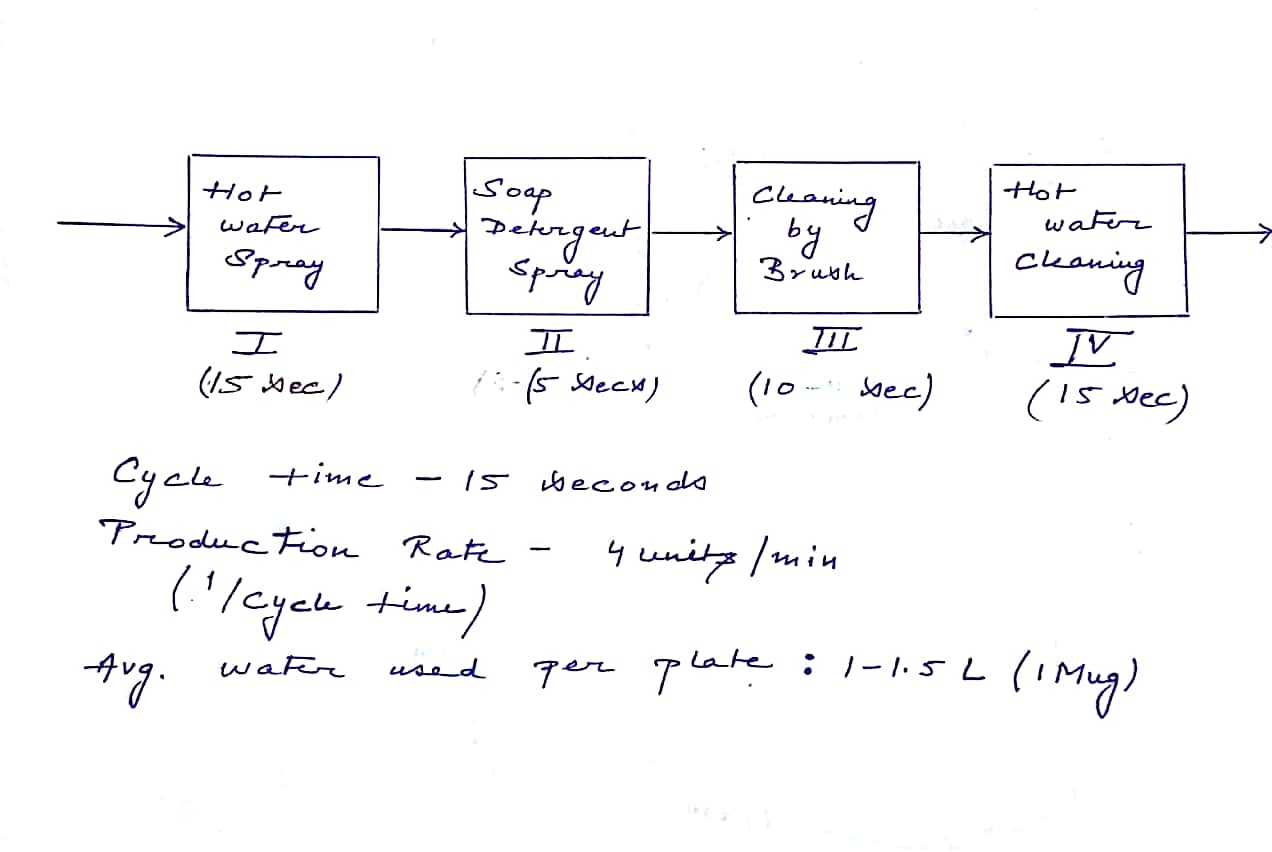 Hot
water
Spray
I
(15 sec)
Soap
Detergent
Spray
II
(5 secs)
Cleaning
by
Brush
III
(10 sec)
Hot
water
Cleaning
IV
(15 sec)
Cycle time - 15 seconds
Production Rate - 4 units/min
(1/cycle time)
Avg. water used per plate : 1-1.5 L (1 Mug)